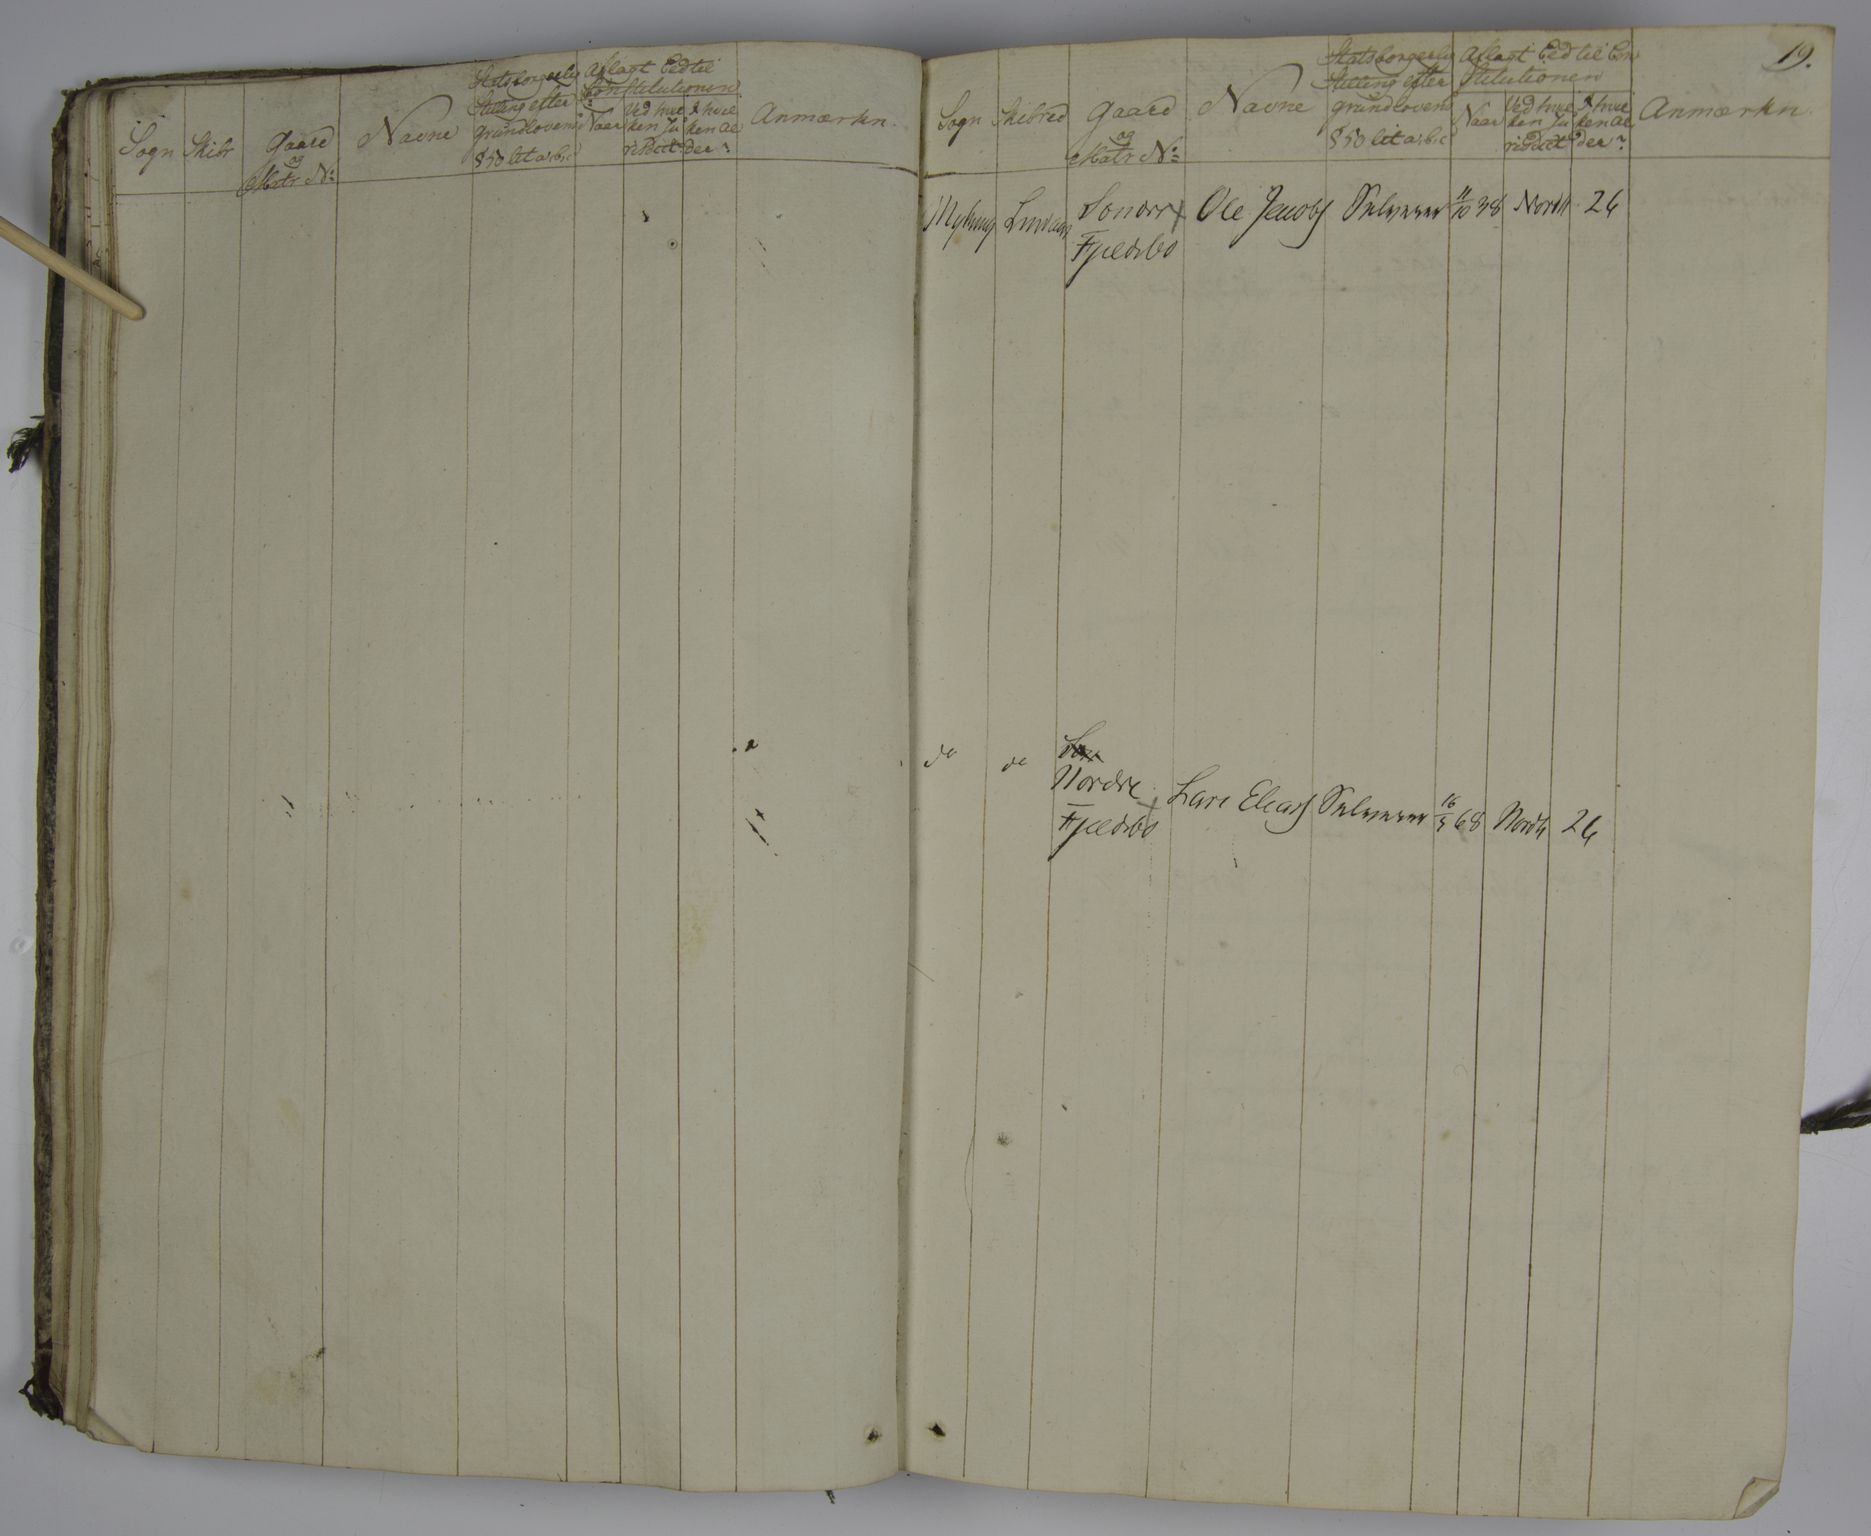 Sogn Skibr Gaard og Matr No: Navne Statsborgerlig Stilling efter grundlovens § 50 lit a, b, c Aflagt Eed til Constitutionen Naar Ved hvilken Ju ridict I hvilken Al der? Anmærkn.
19.
Sogn Skibred Gaard og Matr No: Navne Statsborgerlig Stilling efter grundlovens § 50 lit a, b, c Aflagt Eed til Con stitutionen Naar Ved hvil ken Ju ridict I hvil ken Al der? Anmærkn.
Myking Lindaas Søndre Ole Jacobs Selveier 11/10 38 Nordh 26
Fjeldsbø
do do Søn
Nordre
Fjeldsbø Lars Elias Selveier 16/5 68 Nordh 26